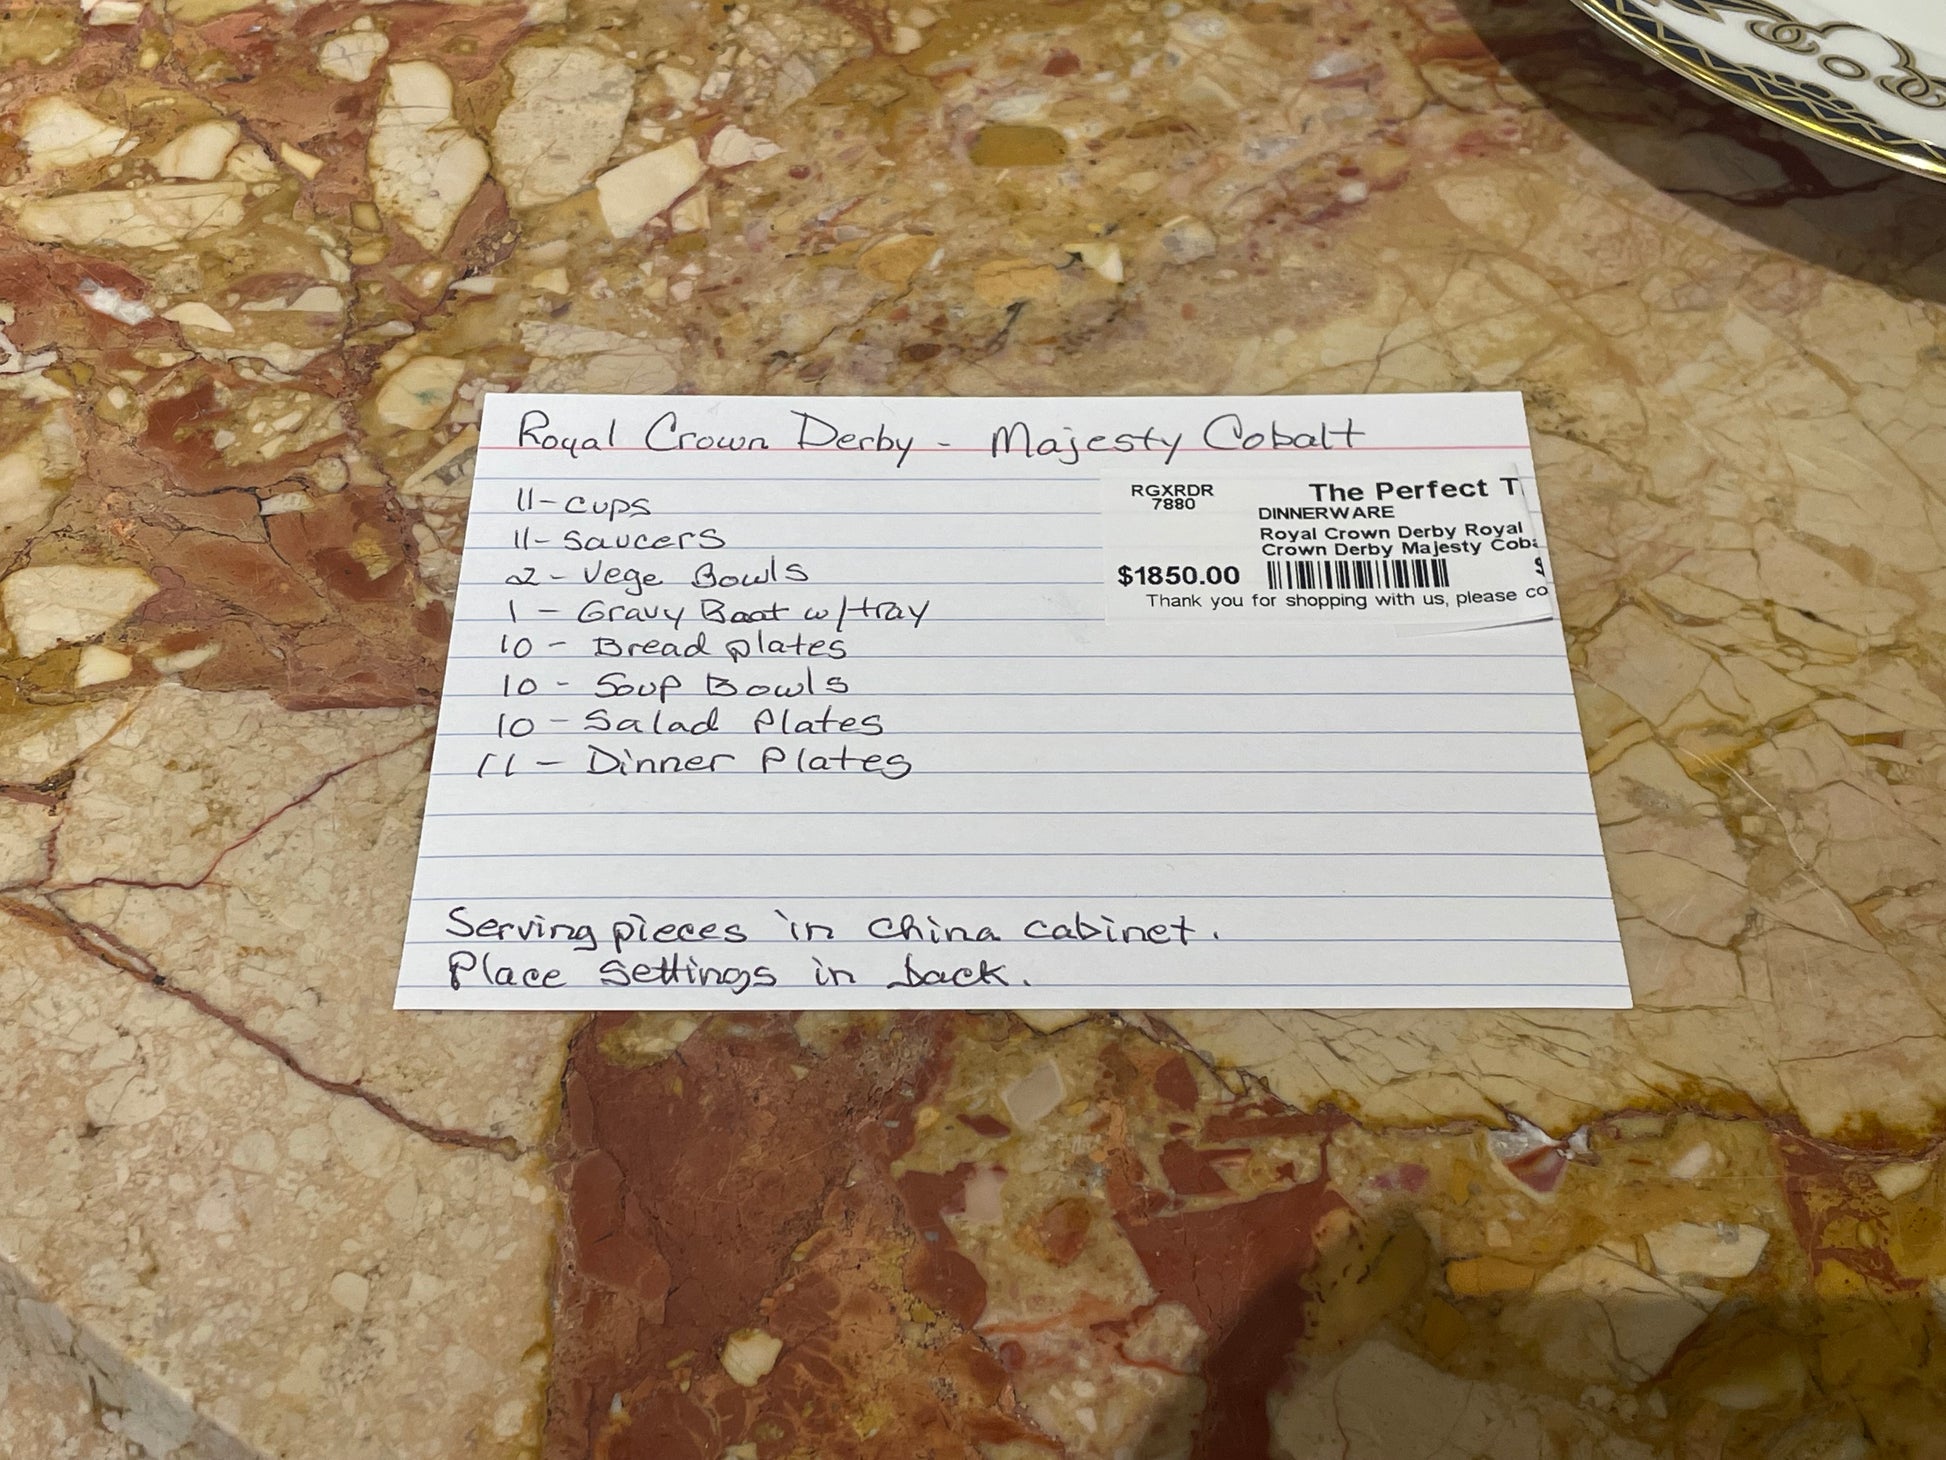 Royal Crown Derby - Majesty Cobalt
11 - cups
11 - Saucers
2 - Vege Bowls
1 - Gravy Boat w/tray
10 - Bread plates
10 - Soup Bowls
10 - Salad Plates
11 - Dinner Plates
Serving pieces in china cabinet.
Place settings in back.
RGXRDR
7880
$1850.00
The Perfect T
DINNERWARE
Royal Crown Derby Royal
Crown Derby Majesty Coba
Thank you for shopping with us, please co